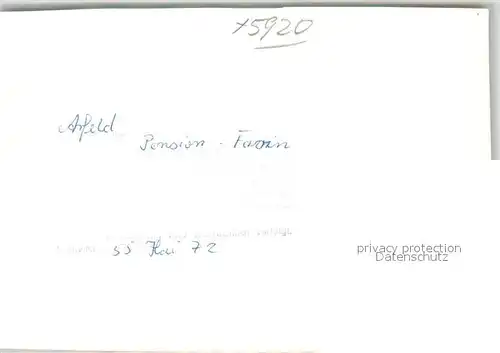 x5920
Arfeld
Pension - Farrin
55 Mai 72
privacy protection
Datenschutz